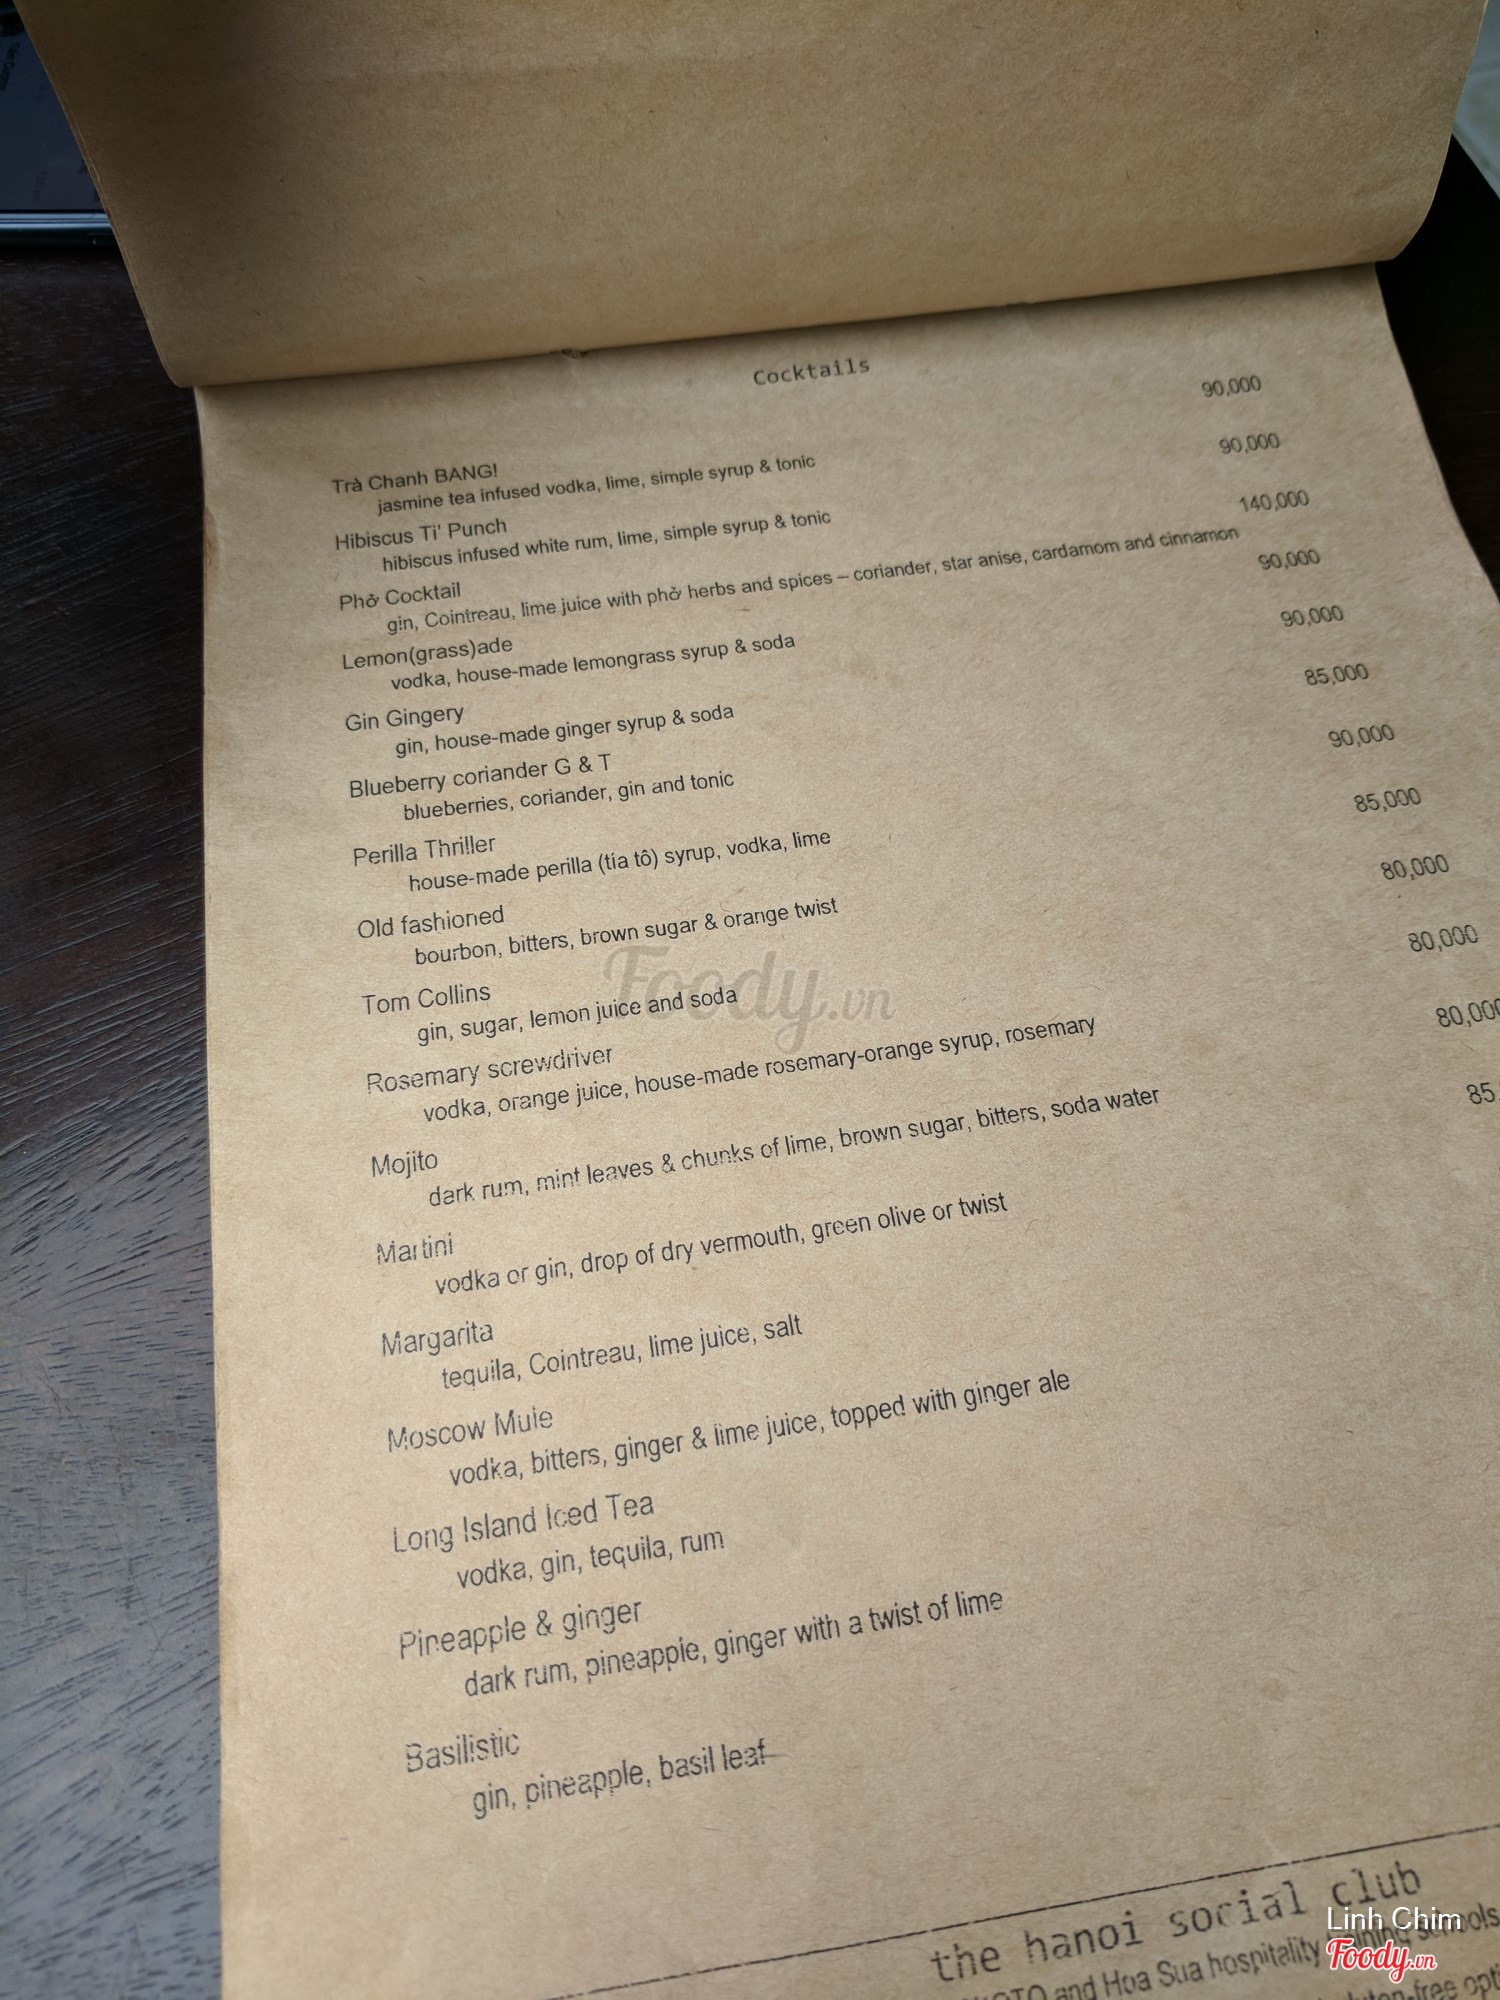 Cocktails
Trà Chanh BANG! 90,000
jasmine tea infused vodka, lime, simple syrup & tonic
Hibiscus Ti' Punch 90,000
hibiscus infused white rum, lime, simple syrup & tonic
Phở Cocktail 140,000
gin, Cointreau, lime juice with phở herbs and spices – coriander, star anise, cardamom and cinnamon
Lemon(grass)ade 90,000
vodka, house-made lemongrass syrup & soda
Gin Gingery 90,000
gin, house-made ginger syrup & soda
Blueberry coriander G & T 85,000
blueberries, coriander, gin and tonic
Perilla Thriller 90,000
house-made perilla (tía tô) syrup, vodka, lime
Old fashioned 85,000
bourbon, bitters, brown sugar & orange twist
Tom Collins 80,000
gin, sugar, lemon juice and soda
Rosemary screwdriver 80,000
vodka, orange juice, house-made rosemary-orange syrup, rosemary
Mojito 80,000
dark rum, mint leaves & chunks of lime, brown sugar, bitters, soda water
Martini 85
vodka or gin, drop of dry vermouth, green olive or twist
Margarita
tequila, Cointreau, lime juice, salt
Moscow Mule
vodka, bitters, ginger & lime juice, topped with ginger ale
Long Island Iced Tea
vodka, gin, tequila, rum
Pineapple & ginger
dark rum, pineapple, ginger with a twist of lime
Basilistic
gin, pineapple, basil leaf
Foody.vn
the hanoi social club
Linh Chim
and Hoa Sua hospitality training schools
Foody.vn